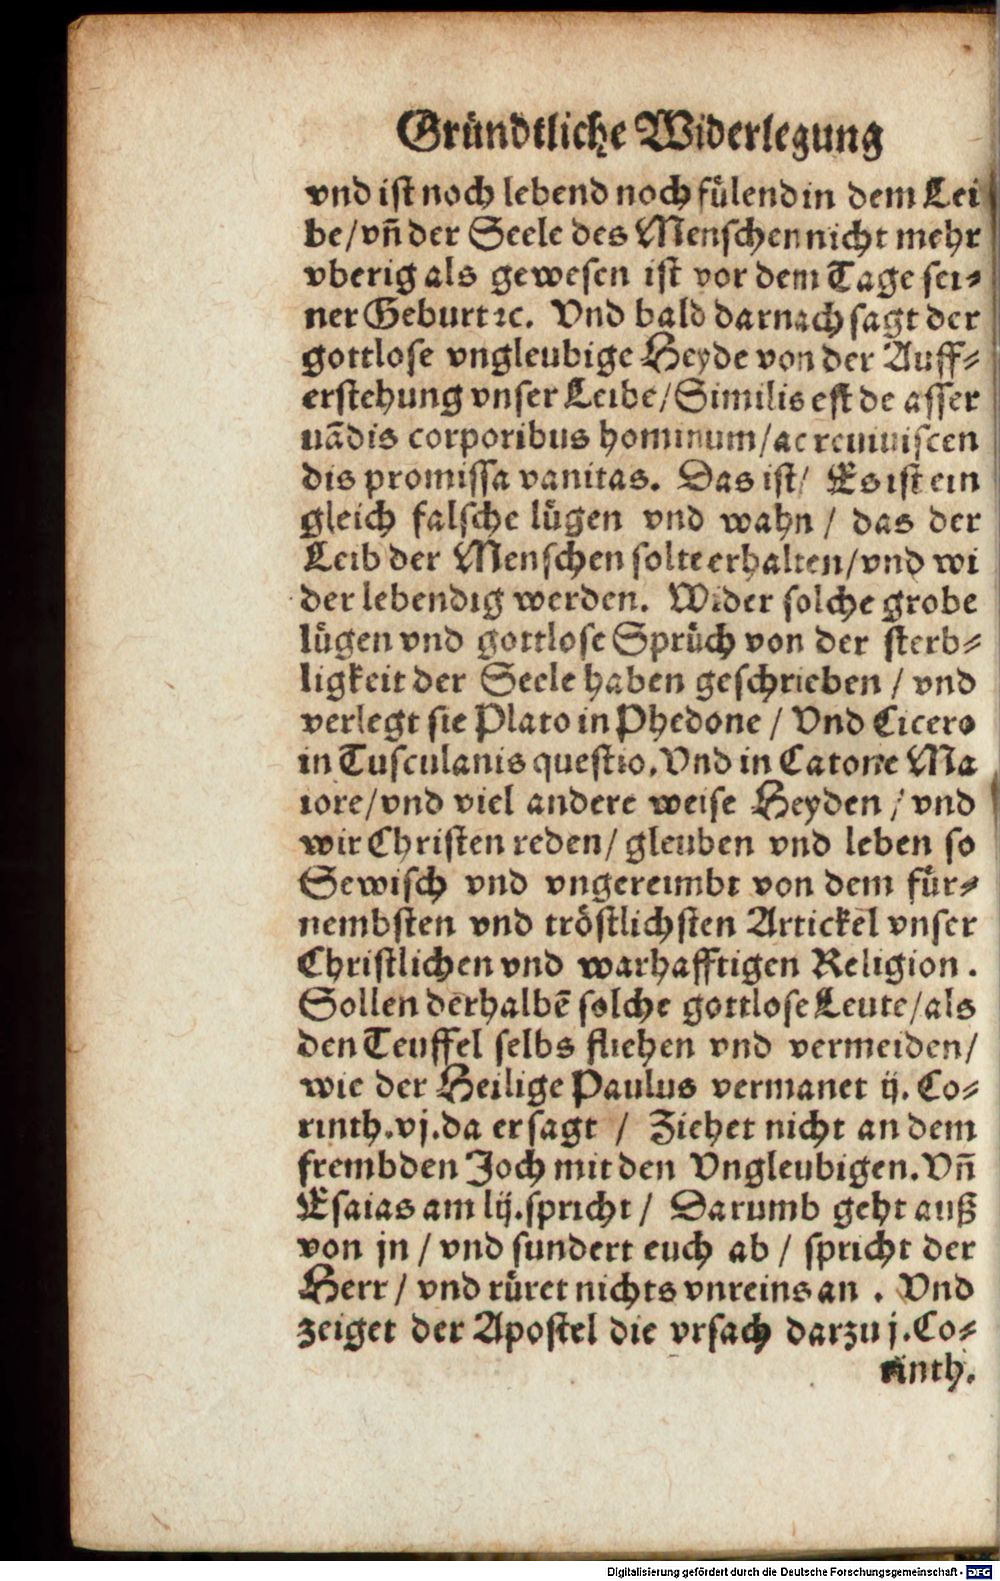 Gründtliche Widerlegung
vnd ist noch lebend noch fülend in dem Lei
be/vñ der Seele des Menschen nicht mehr
vberig als gewesen ist vor dem Tage sei⸗
ner Geburt ꝛc. Vnd bald darnach sagt der
gottlose vngleubige Heyde von der Auff⸗
erstehung vnser Leibe/Similis est de asser
uãdis corporibus hominum/ac reuiuiscen
dis promissa vanitas. Das ist/ Es ist ein
gleich falsche lügen vnd wahn / das der
Leib der Menschen solte erhalten/vnd wi
der lebendig werden. Wider solche grobe
lügen vnd gottlose Sprüch von der sterb⸗
ligkeit der Seele haben geschrieben / vnd
verlegt sie Plato in Phedone / Vnd Cicero
in Tusculanis questio. Vnd in Catone Ma
iore/vnd viel andere weise Heyden / vnd
wir Christen reden/ gleuben vnd leben so
Sewisch vnd vngereimbt von dem für⸗
nembsten vnd tröstlichsten Artickel vnser
Christlichen vnd warhafftigen Religion.
Sollen derhalbẽ solche gottlose Leute/als
den Teuffel selbs fliehen vnd vermeiden/
wie der Heilige Paulus vermanet ij. Co⸗
rinth.vj.da er sagt / Ziehet nicht an dem
frembden Joch mit den Vngleubigen. Vñ
Esaias am lij.spricht / Darumb geht auß
von jn / vnd sundert euch ab / spricht der
Herr / vnd rüret nichts vnreins an . Vnd
zeiget der Apostel die vrsach darzu j. Co⸗
rinth.
Digitalisierung gefördert durch die Deutsche Forschungsgemeinschaft - DFG